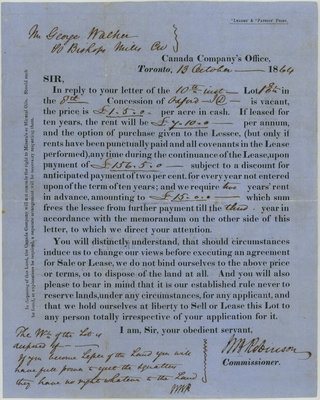 "LEADER & PATRIOT" PRINT.
Mr George Walker
PO Bishops Mills CW
Canada Company's Office,
Toronto, 13 October 1864
SIR,
In reply to your letter of the 10th inst Lot 18 in
the 8th Concession of Oxford is vacant,
the price is £1.5.0 per acre in cash. If leased for
ten years, the rent will be £7.10.0 per annum,
and the option of purchase given to the Lessee, (but only if
rents have been punctually paid and all covenants in the Lease
performed), any time during the continuance of the Lease, upon
payment of £156.5 subject to a discount for
anticipated payment of two per cent. for every year not entered
upon of the term of ten years; and we require two years' rent
in advance, amounting to £15.0.0 which sum
frees the lessee from further payment till the third year in
accordance with the memorandum on the other side of this
letter, to which we direct your attention.
You will distinctly understand, that should circumstances
induce us to change our views before executing an agreement
for Sale or Lease, we do not bind ourselves to the above price
or terms, or to dispose of the land at all. And you will also
please to bear in mind that it is our established rule never to
reserve lands, under any circumstances, for any applicant, and
that we hold ourselves at liberty to Sell or Lease this Lot to
any person totally irrespective of your application for it.
I am, Sir, your obedient servant,
WB Robinson
Commissioner.
The W½ of the Lot is
disposed of
If you become Lessee of the Land you will
have full power to eject the Squatters
they have no right whatever to the Land
WBR